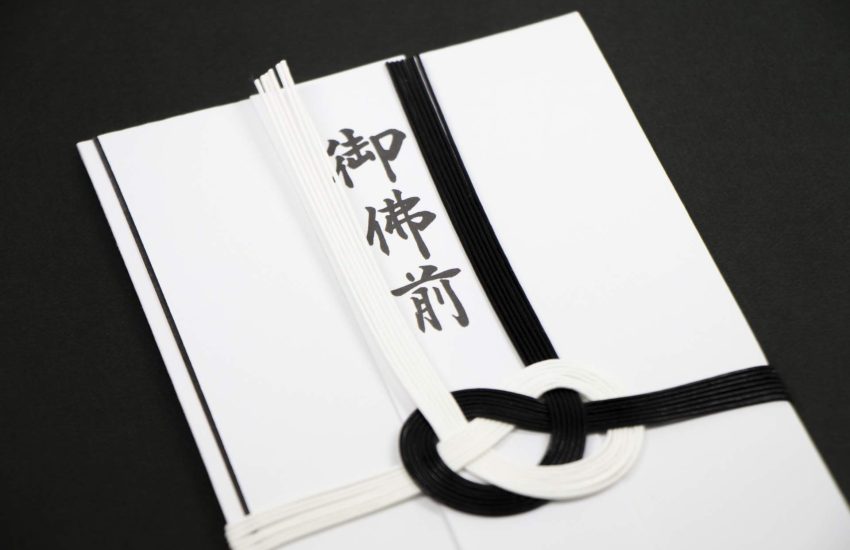 御佛前